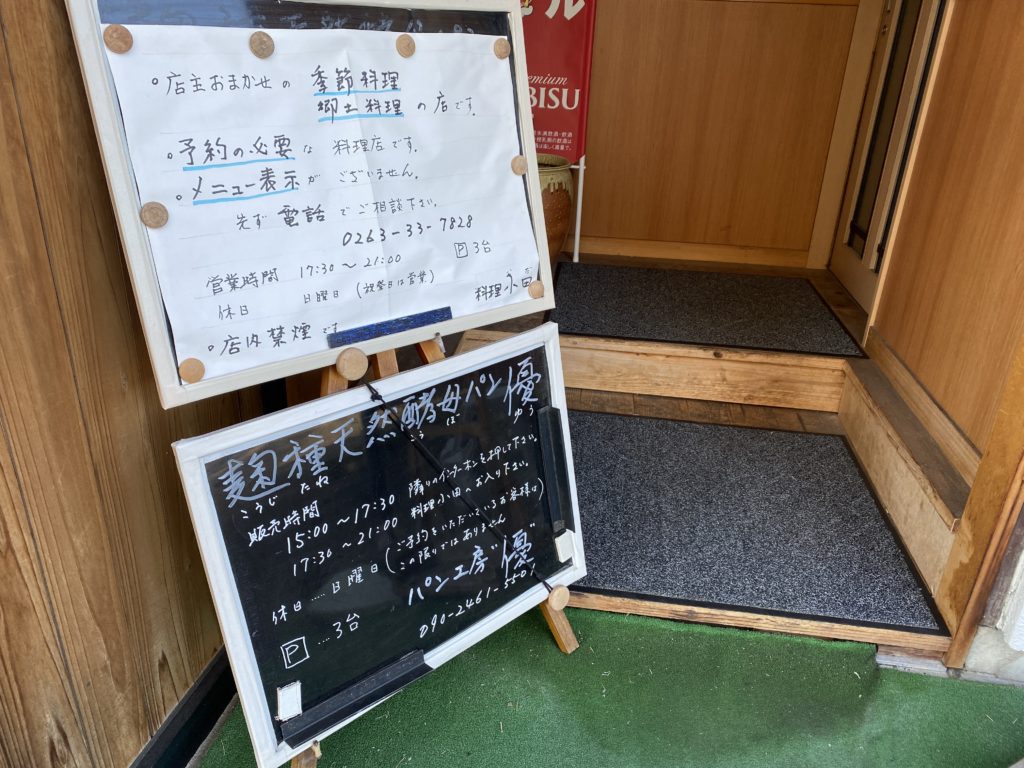 。店主おまかせの 季節料理
郷土料理 の店です。
。予約の必要な 料理店です。
。メニュー表示が ございません。
先ず 電話 でご相談下さい。
0263-33-7828
P 3台
営業時間 17:30～21:00
休日 日曜日 (祝祭日は営業)
料理 小田
。店内禁煙です
ル
Premium
BISU
麹種天然酵母パン優
こうじ たね こう ぼ ゆう
販売時間
15:00～17:30 隣りのインターホンを押して下さい。
17:30～21:00 料理小田へお入り下さい。
休日....日曜日 (ご予約をいただいているお客様は
この限りではありません)
P ....3台
パン工房"優"
090-2461-5501